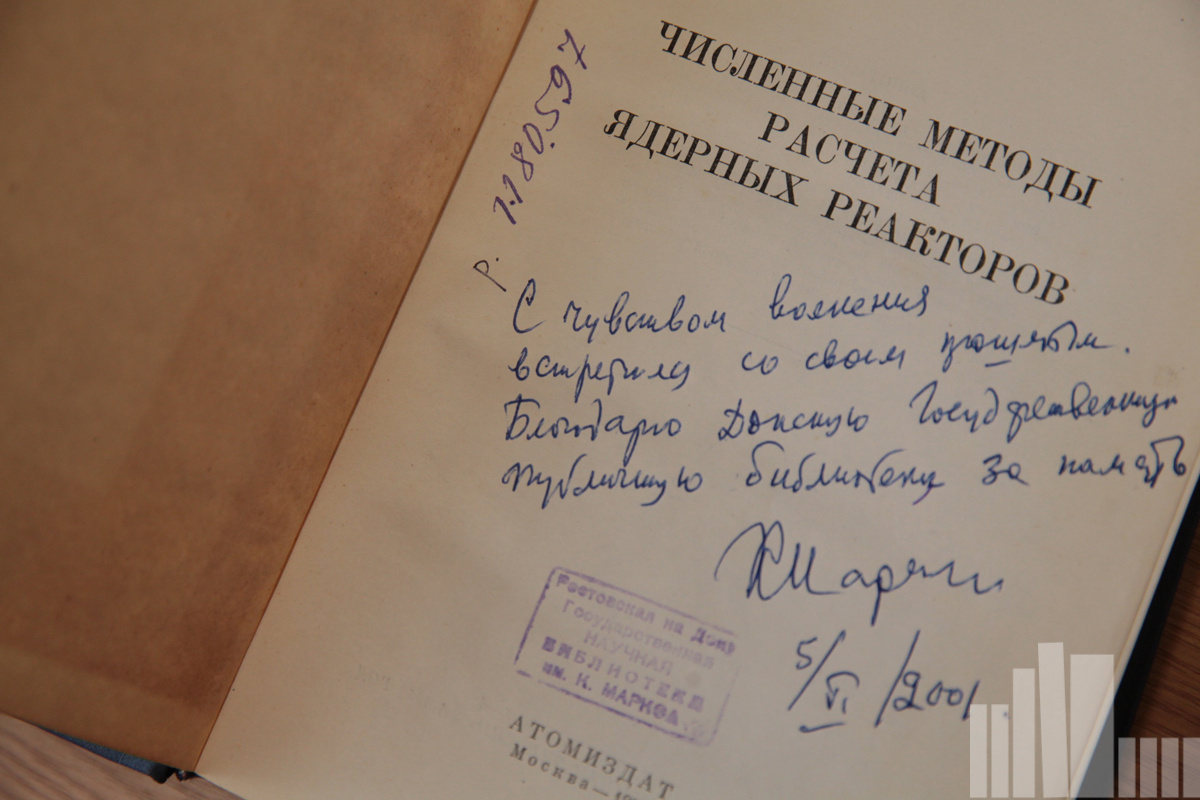 ЧИСЛЕННЫЕ МЕТОДЫ
РАСЧЕТА
ЯДЕРНЫХ РЕАКТОРОВ
р. 1180.597
С чувством волнения
встретился со своим прошлым.
Благодарю Донскую Государственную
публичную библиотеку за память
5/VI/2001.
Ростовская на Дону
Государственная
НАУЧНАЯ
БИБЛИОТЕКА
им. К. МАРКСА
АТОМИЗДАТ
Москва — 19